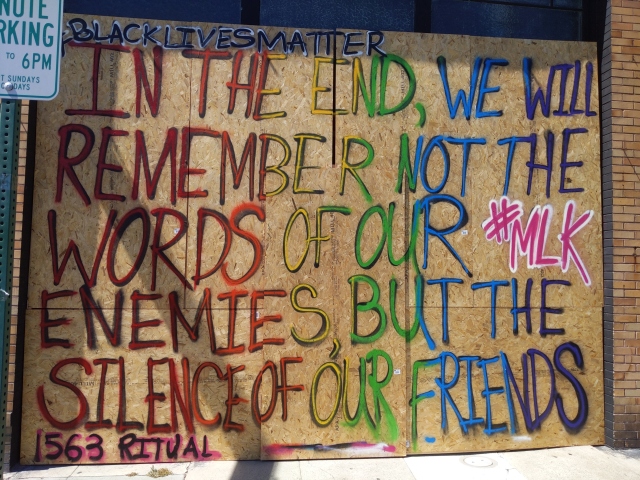 #BLACKLIVESMATTER
IN THE END, WE WILL
REMEMBER NOT THE
WORDS OF OUR #MLK
ENEMIES, BUT THE
SILENCE OF OUR FRIENDS
1563 RITUAL
TO 6PM